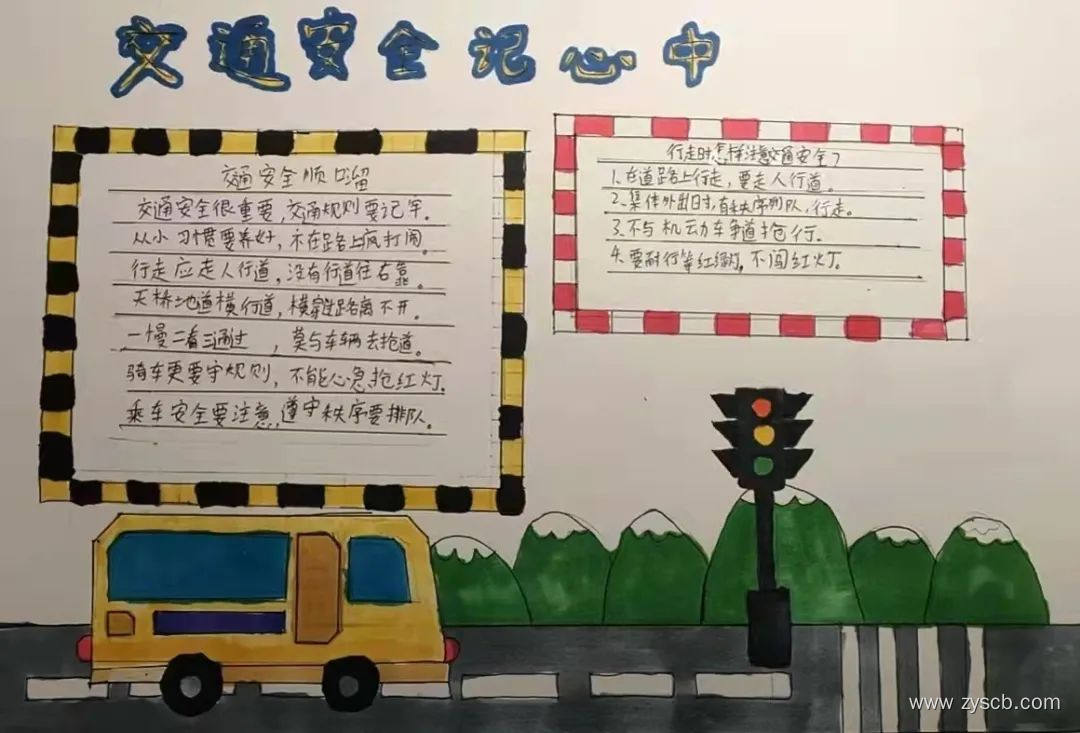 交通安全记心中
交通安全顺口溜
交通安全很重要,交通规则要记牢。
从小习惯要养好,不在路上疯打闹。
行走应走人行道,没有行道往右靠。
天桥地道横行道,横穿路离不开。
一慢二看三通过,莫与车辆去抢道。
骑车更要守规则,不能心急抢红灯。
乘车安全要注意,遵守秩序要排队。
行走时怎样注意交通安全?
1.在道路上行走,要走人行道。
2.集体外出时,有秩序列队,行走。
3.不与机动车争道抢行.
4.要耐行等红绿灯,不闯红灯.
www.zyscb.com